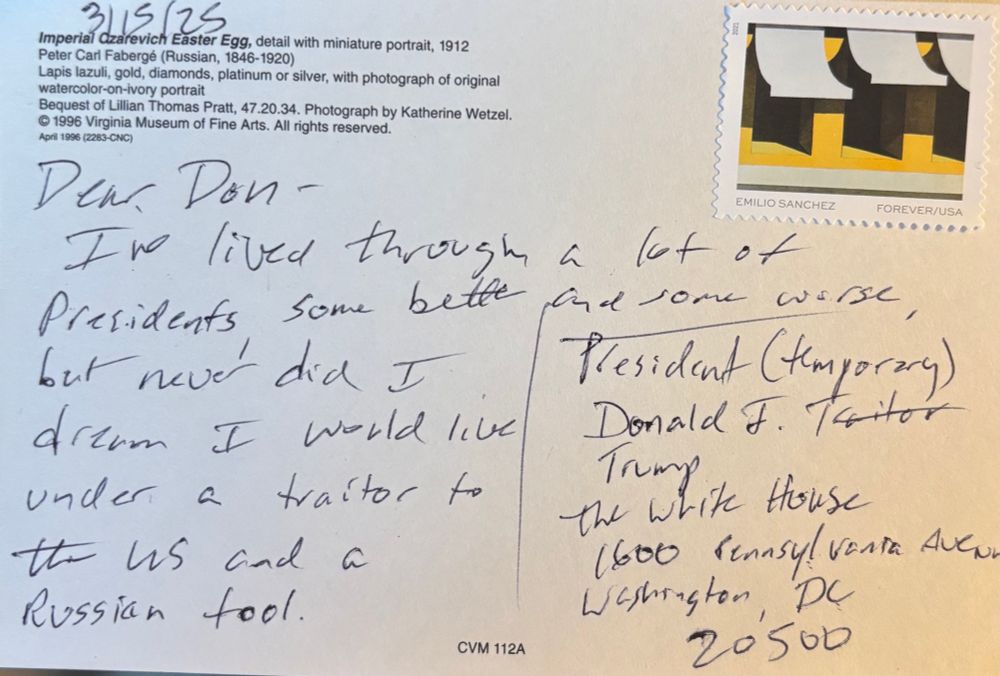 3/15/25
Imperial Czarevich Easter Egg, detail with miniature portrait, 1912
Peter Carl Fabergé (Russian, 1846-1920)
Lapis lazuli, gold, diamonds, platinum or silver, with photograph of original
watercolor-on-ivory portrait
Bequest of Lillian Thomas Pratt, 47.20.34. Photograph by Katherine Wetzel.
© 1996 Virginia Museum of Fine Arts. All rights reserved.
April 1996 (2283-CNC)
2021
EMILIO SANCHEZ
FOREVER/USA
Dear Don -
I've lived through a lot of
Presidents, some better and some worse,
but never did I
dream I would live
under a traitor to
the US and a
Russian tool.
President (temporary)
Donald J. Traitor
Trump
the White House
1600 Pennsylvania Avenu
Washington, DC
20500
CVM 112A